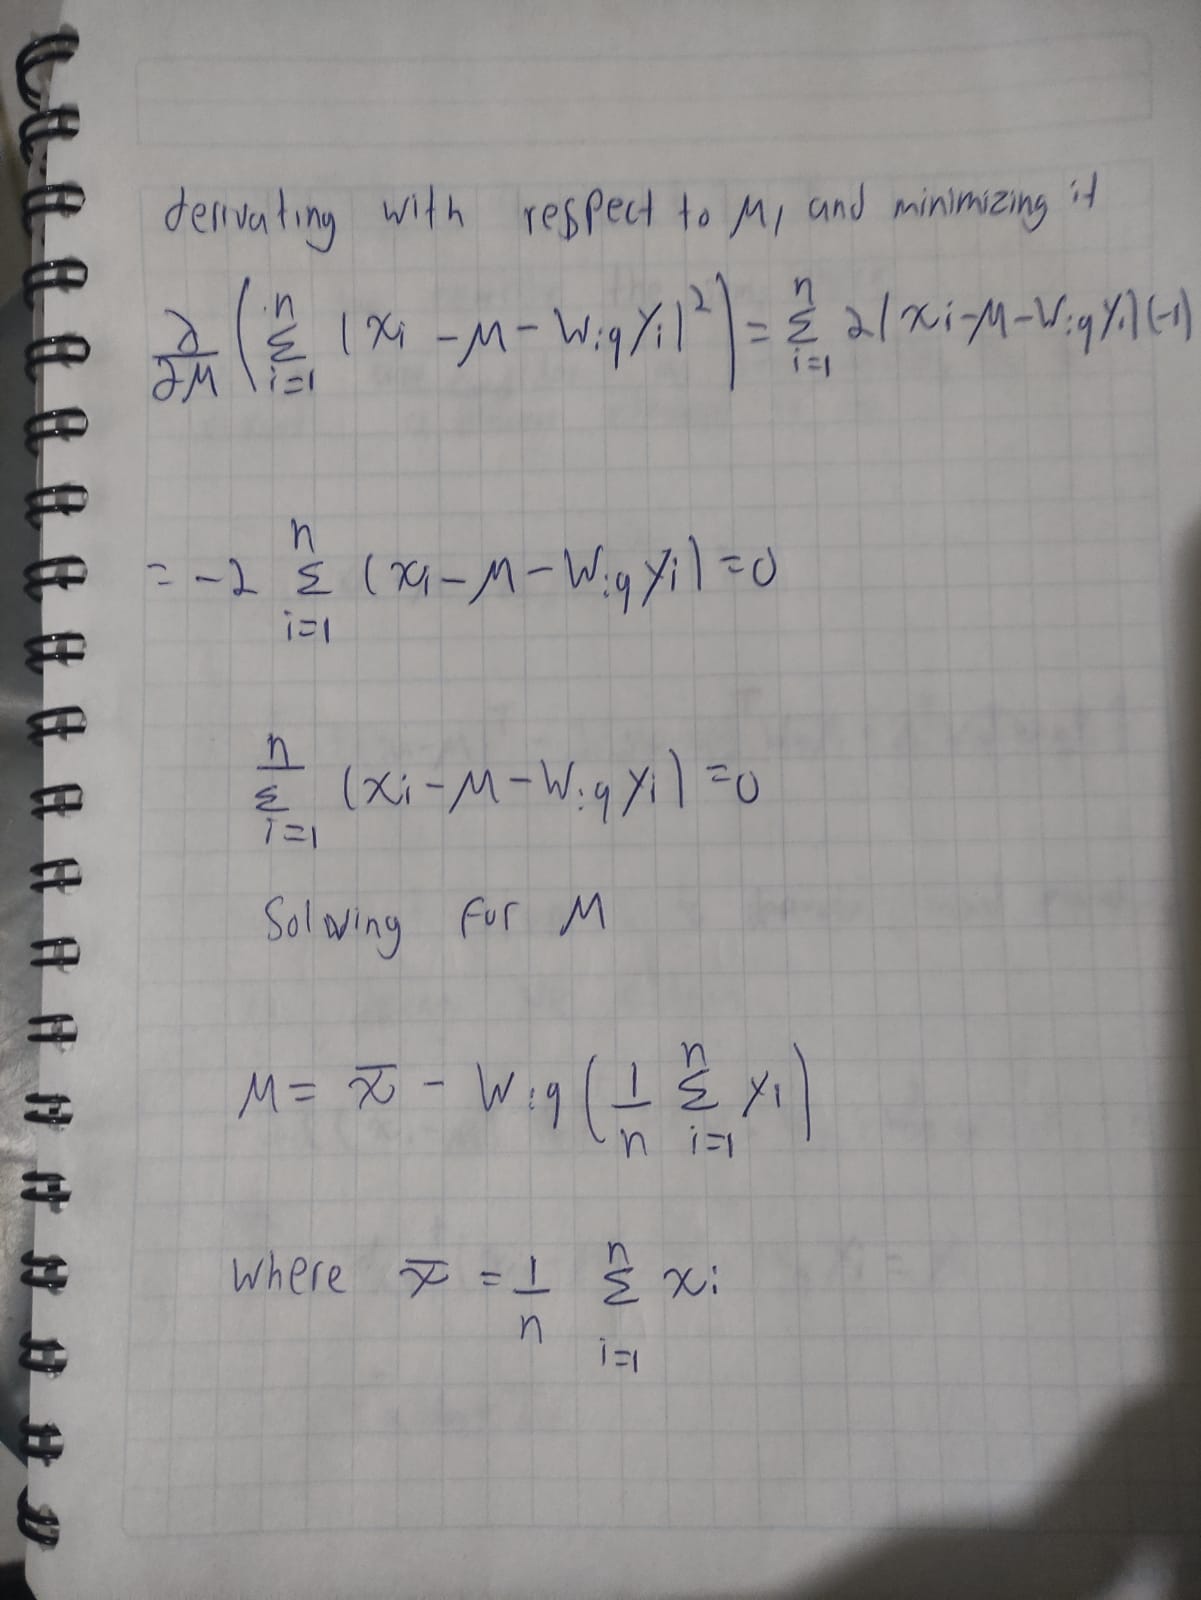 derivating with respect to μ, and minimizing it
∂/∂μ ( Σ_{i=1}^{n} (xi - μ - W:q yi)² ) = Σ_{i=1}^{n} 2(xi - μ - W:q yi)(-1)
= -2 Σ_{i=1}^{n} (xi - μ - W:q yi) = 0
Σ_{i=1}^{n} (xi - μ - W:q yi) = 0
Solving for μ
μ = x̄ - W:q ( 1/n Σ_{i=1}^{n} yi )
where x̄ = 1/n Σ_{i=1}^{n} xi